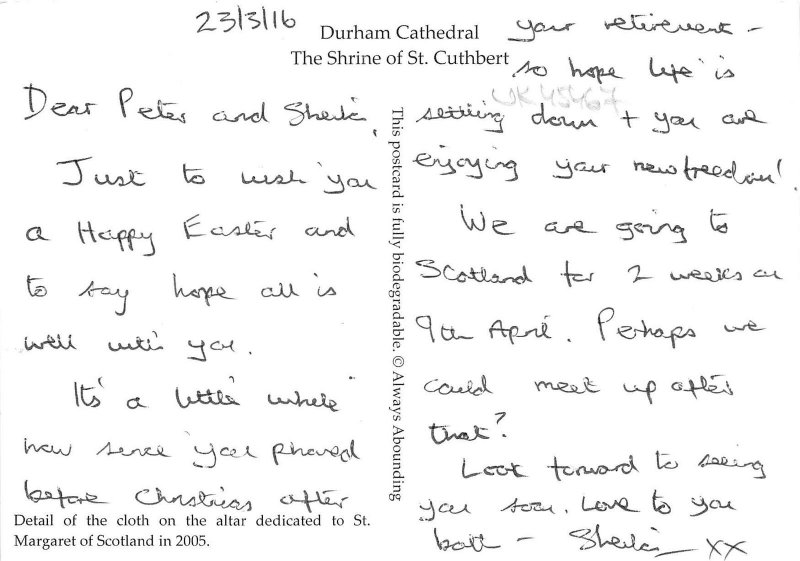 23/3/16
Durham Cathedral
The Shrine of St. Cuthbert
Dear Peter and Sheila,
Just to wish you
a Happy Easter and
to say hope all is
well with you.
It's a little while
now since you phoned
before Christmas after
Detail of the cloth on the altar dedicated to St.
Margaret of Scotland in 2005.
This postcard is fully biodegradable. © Always Abounding
your retirement –
so hope life is
UK45467
settling down + you are
enjoying your new freedom!
We are going to
Scotland for 2 weeks on
9th April. Perhaps we
could meet up after
that?
Look forward to seeing
you soon. Love to you
both – Sheila XX